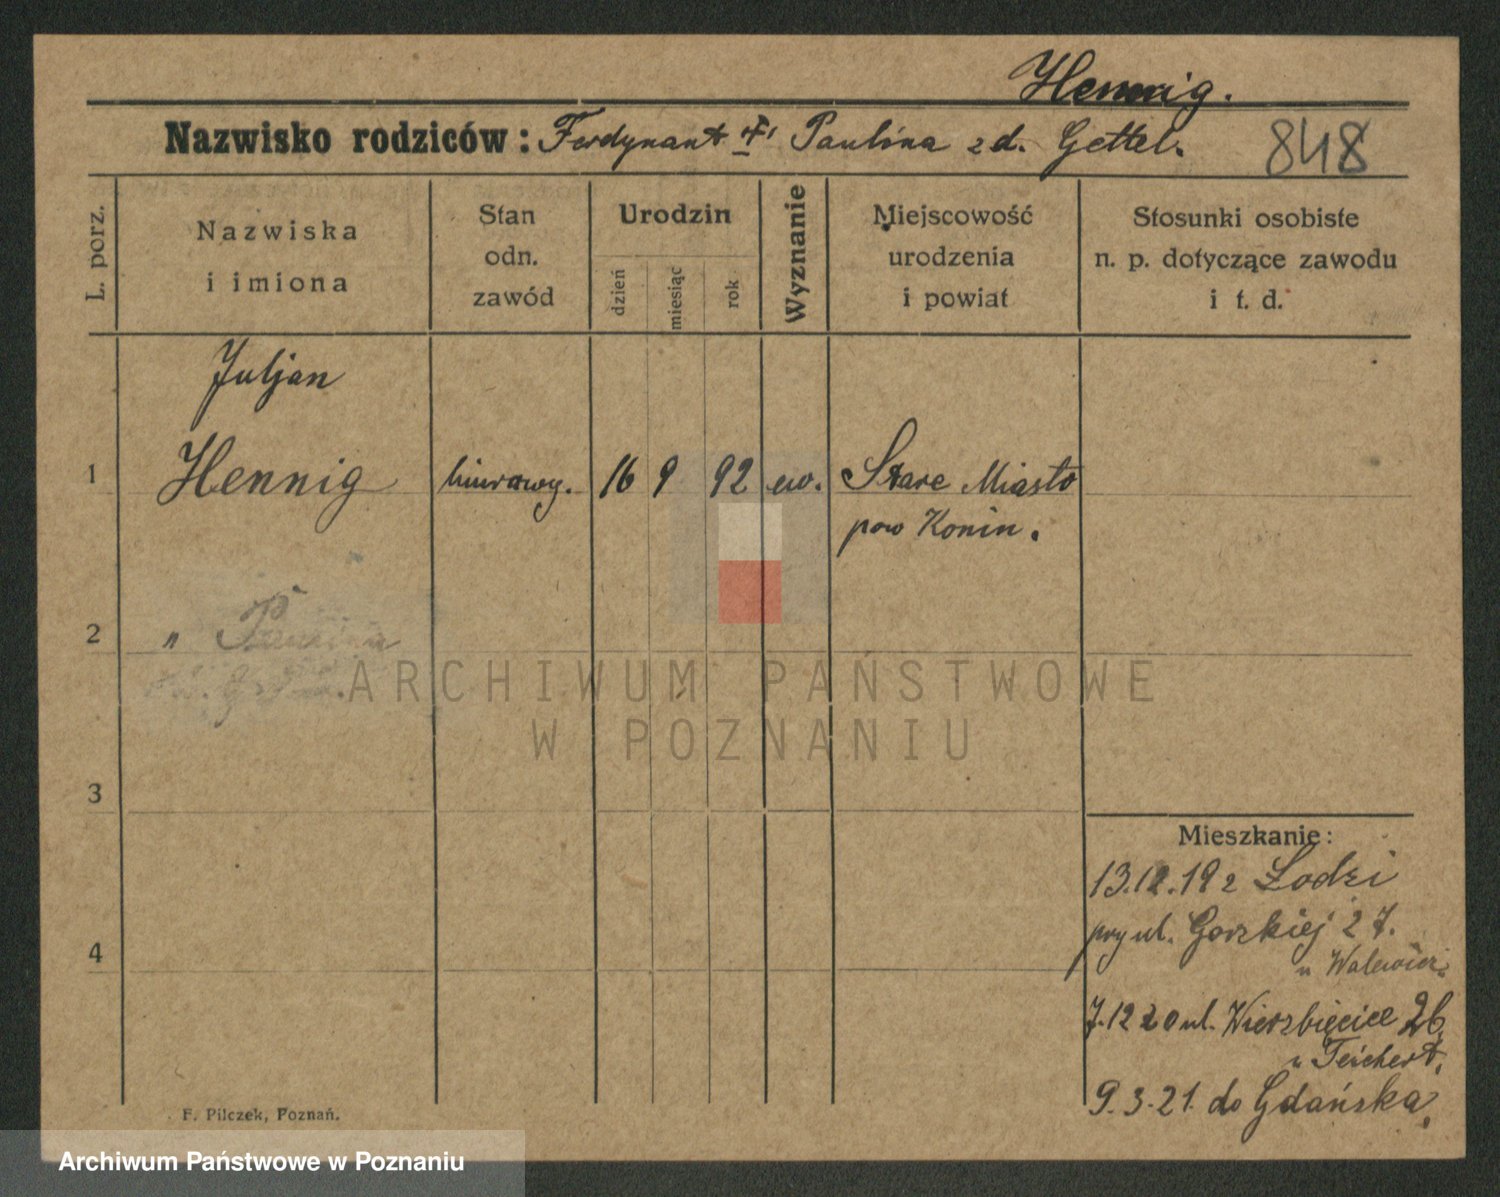 Hennig.
Nazwisko rodziców: Ferdynant i Paulina zd. Gettel.
848
L. porz.
Nazwiska
i imiona
Stan
odn.
zawód
Urodzin
dzień
miesiąc
rok
Wyznanie
Miejscowość
urodzenia
i powiat
Stosunki osobiste
n. p. dotyczące zawodu
i t. d.
Juljan
1 Hennig 16 9 92 ew. Stare Miasto
pow Konin.
2 "
3
4
Mieszkanie:
13.12.19 z Łodzi
przy ul. Gorzkiej 2 7.
u
7.12 20 ul. Wierzbięcice 26,
u Teichert,
9.3.21. do Gdańska,
F. Pilczek, Poznań.
ARCHIWUM PAŃSTWOWE
W POZNANIU
Archiwum Państwowe w Poznaniu